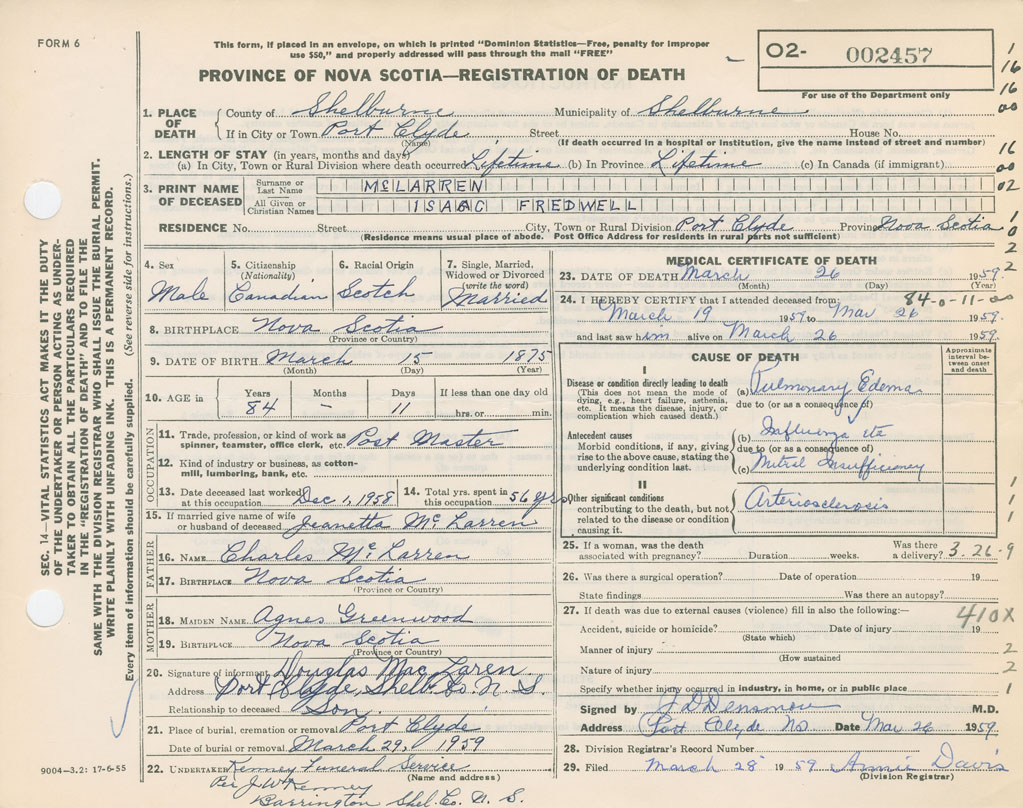 FORM 6
This form, if placed in an envelope, on which is printed "Dominion Statistics—Free, penalty for improper
use $50," and properly addressed will pass through the mail "FREE"
PROVINCE OF NOVA SCOTIA—REGISTRATION OF DEATH
O2- 002457
For use of the Department only
1
16
16
00
1. PLACE OF DEATH
County of Shelburne Municipality of Shelburne
If in City or Town Port Clyde Street House No.
(Name) (If death occurred in a hospital or institution, give the name instead of street and number)
2. LENGTH OF STAY (in years, months and days)
(a) In City, Town or Rural Division where death occurred Lifetime (b) In Province Lifetime (c) In Canada (if immigrant)
16
00
3. PRINT NAME OF DECEASED
Surname or Last Name McLARREN
02
All Given or Christian Names ISAAC FREDWELL
RESIDENCE No. Street City, Town or Rural Division Port Clyde Province Nova Scotia
(Residence means usual place of abode. Post Office Address for residents in rural parts not sufficient)
1
0
2
2
4. Sex Male
5. Citizenship (Nationality) Canadian
6. Racial Origin Scotch
7. Single, Married, Widowed or Divorced (write the word) Married
8. BIRTHPLACE Nova Scotia
(Province or Country)
9. DATE OF BIRTH March 15 1875
(Month) (Day) (Year)
10. AGE in Years Months Days If less than one day old
84 - 11 hrs. or min.
OCCUPATION
11. Trade, profession, or kind of work as spinner, teamster, office clerk, etc. Post Master
12. Kind of industry or business, as cotton-mill, lumbering, bank, etc.
13. Date deceased last worked at this occupation Dec 1, 1958
14. Total yrs. spent in this occupation 56 yrs
15. If married give name of wife or husband of deceased Jeanetta McLarren
FATHER
16. NAME Charles McLarren
17. BIRTHPLACE Nova Scotia
(Province or Country)
MOTHER
18. MAIDEN NAME Agnes Greenwood
19. BIRTHPLACE Nova Scotia
(Province or Country)
20. Signature of informant Douglas Mac Laren
Address Port Clyde, Shel. Co. N. S.
Relationship to deceased Son
21. Place of burial, cremation or removal Port Clyde
Date of burial or removal March 29, 1959
22. UNDERTAKER Kenney Funeral Service
(Name and address)
Per J.W Kenney
Barrington Shel. Co. N. S.
MEDICAL CERTIFICATE OF DEATH
23. DATE OF DEATH March 26 1959
(Month) (Day) (Year)
24. I HEREBY CERTIFY that I attended deceased from: 84-0-11-00
March 19 1959 to Mar 26 1959
and last saw him alive on March 26 1959
CAUSE OF DEATH
Approximate interval between onset and death
I
Disease or condition directly leading to death
(This does not mean the mode of dying, e.g., heart failure, asthenia, etc. It means the disease, injury, or complication which caused death.)
(a) Pulmonary Edema
due to (or as a consequence of)
Antecedent causes
Morbid conditions, if any, giving rise to the above cause, stating the underlying condition last.
(b) Influenza
due to (or as a consequence of)
(c) Mitral Insufficiency
II
Other significant conditions
contributing to the death, but not related to the disease or condition causing it.
Arteriosclerosis
1
1
1
25. If a woman, was the death associated with pregnancy? Duration weeks. Was there a delivery? 3-26-9
26. Was there a surgical operation? Date of operation 19
State findings Was there an autopsy?
27. If death was due to external causes (violence) fill in also the following:—
410X
Accident, suicide or homicide? Date of injury 19
(State which)
Manner of injury 2
(How sustained
Nature of injury 2
Specify whether injury occurred in industry, in home, or in public place 1
Signed by J D Densmore M.D.
Address Port Clyde NS Date Mar 26 1959
28. Division Registrar's Record Number
29. Filed March 28 1959 Annie Davis
(Division Registrar)
SEC. 14—VITAL STATISTICS ACT MAKES IT THE DUTY
OF THE UNDERTAKER OR PERSON ACTING AS UNDER-
TAKER TO OBTAIN ALL THE PARTICULARS REQUIRED
IN THE "REGISTRATION OF DEATH" AND TO FILE THE
SAME WITH THE DIVISION REGISTRAR WHO SHALL ISSUE THE BURIAL PERMIT.
WRITE PLAINLY WITH UNFADING INK. THIS IS A PERMANENT RECORD.
Every item of information should be carefully supplied. (See reverse side for instructions.)
9004-3.2: 17-6-55